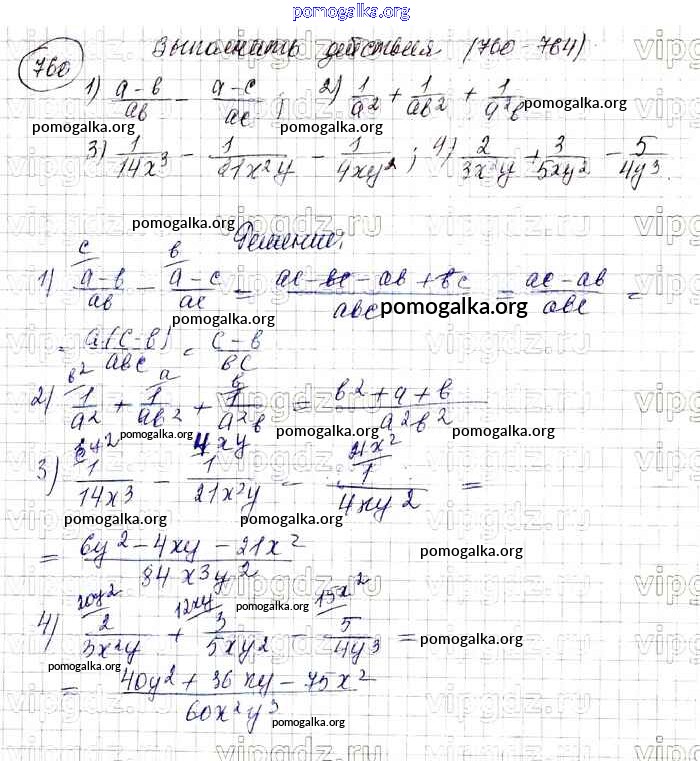 pomogalka.org
Выполнить действия (760-764)
760
1) (a-b)/ab - (a-c)/ac; 2) 1/a² + 1/ab² + 1/a²b
pomogalka.org pomogalka.org pomogalka.org
3) 1/14x³ - 1/21x²y - 1/4xy²; 4) 2/3x²y + 3/5xy² - 5/4y³.
pomogalka.org
Решение:
c b
1) (a-b)/ab - (a-c)/ac = (ac-bc-ab+bc)/abc = (ac-ab)/abc =
pomogalka.org
pomogalka.org
= a(c-b)/abc = (c-b)/bc
b² a b
2) 1/a² + 1/ab² + 1/a²b = (b²+a+b)/a²b²
pomogalka.org pomogalka.org pomogalka.org
6y² 4xy 21x²
3) 1/14x³ - 1/21x²y - 1/4xy² =
pomogalka.org pomogalka.org
= (6y²-4xy-21x²)/84x³y²
pomogalka.org
20y² 12xy 15x²
pomogalka.org
4) 2/3x²y + 3/5xy² - 5/4y³ =
pomogalka.org
pomogalka.org
= (40y²+36xy-75x²)/60x²y³
pomogalka.org
vipgdz.ru